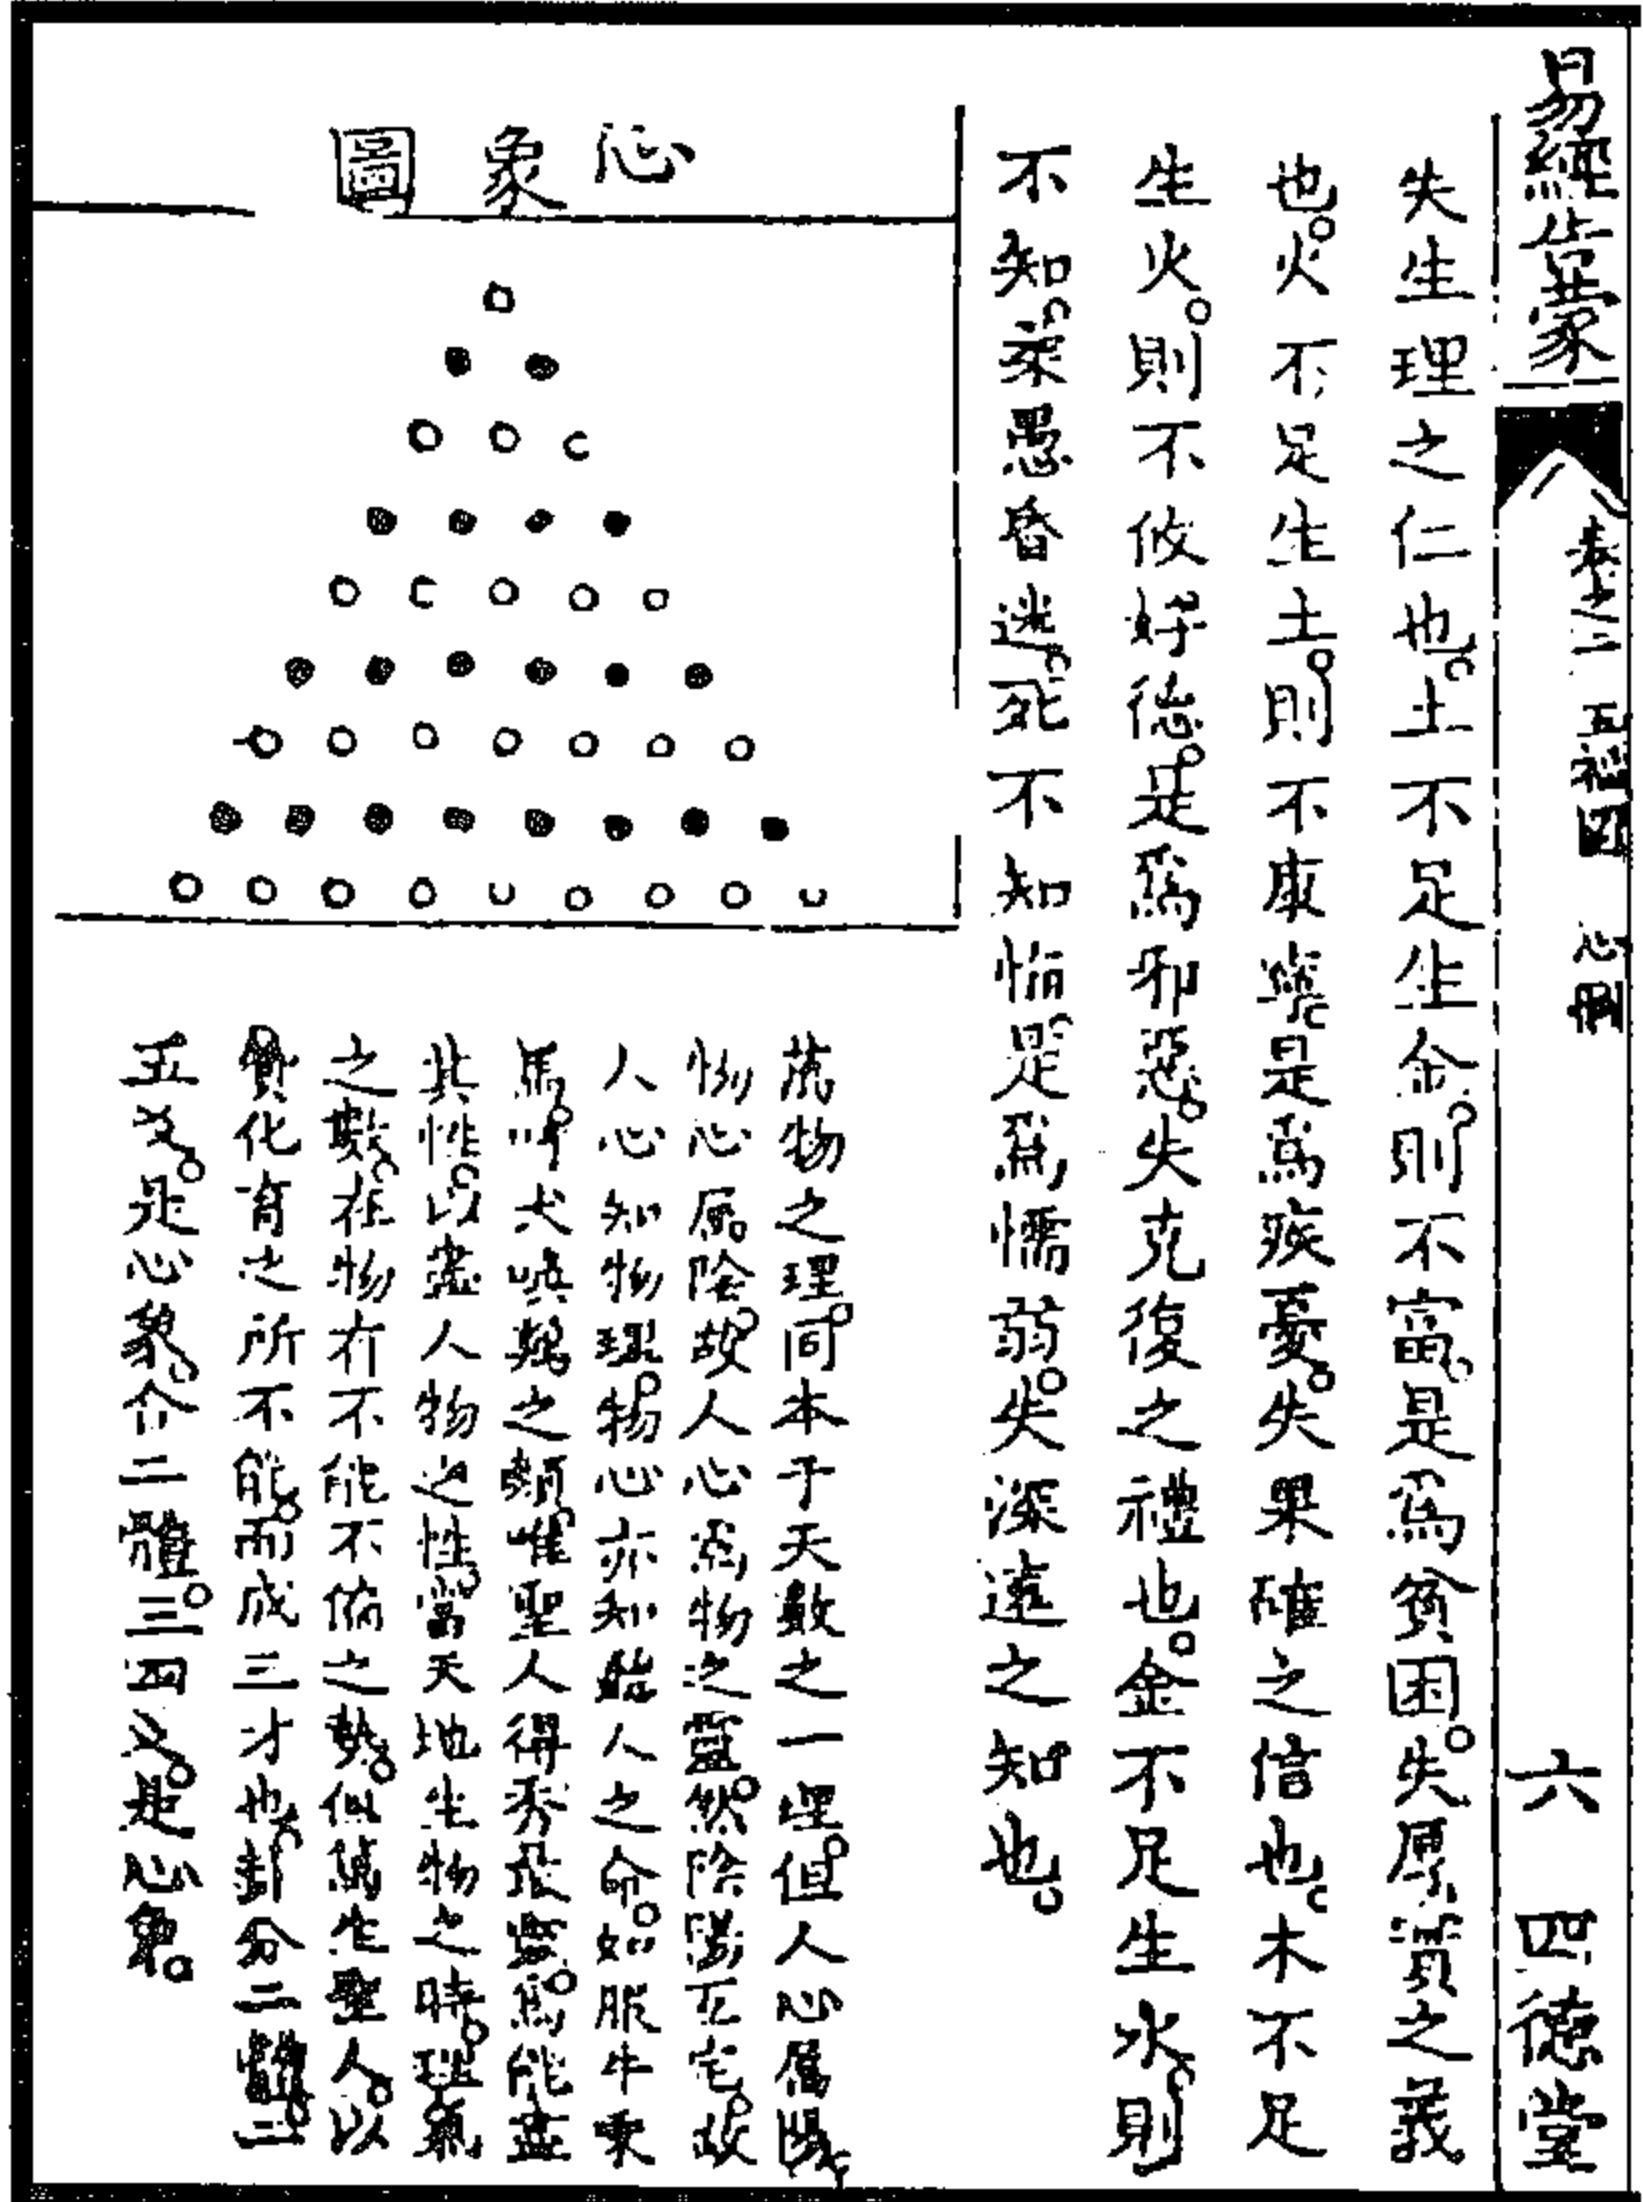 易經告蒙
卷之二 五福圖 心圖
六 四德堂
失生理之仁也。土不足生金。則不富。是爲貧困。失厚實之義
也。火不足生土。則不康寧。是爲疾憂。失果確之信也。木不足
生火。則不攸好德。是爲邪惡。失克復之禮也。金不足生水。則
不知。柔愚昏迷。死不知悔。是爲懦弱。失深遠之知也。
心象圖
萬物之理。同本于天數之一理。但人心屬陽。
物心屬陰。故人心爲物之靈。然陰陽互宅。故
人心知物理。物心亦知人之命。如服牛乘
馬。呼犬喚鷄之類。唯聖人得秀最靈。爲能盡
其性。以盡人物之性。當天地生物之時。理氣
之數。在物有不能不偏之勢。但篤生聖人。以
贊化育之所不能。而成三才也。卦分二體。二
五爻。是心象。合二體。三四爻。是心象。